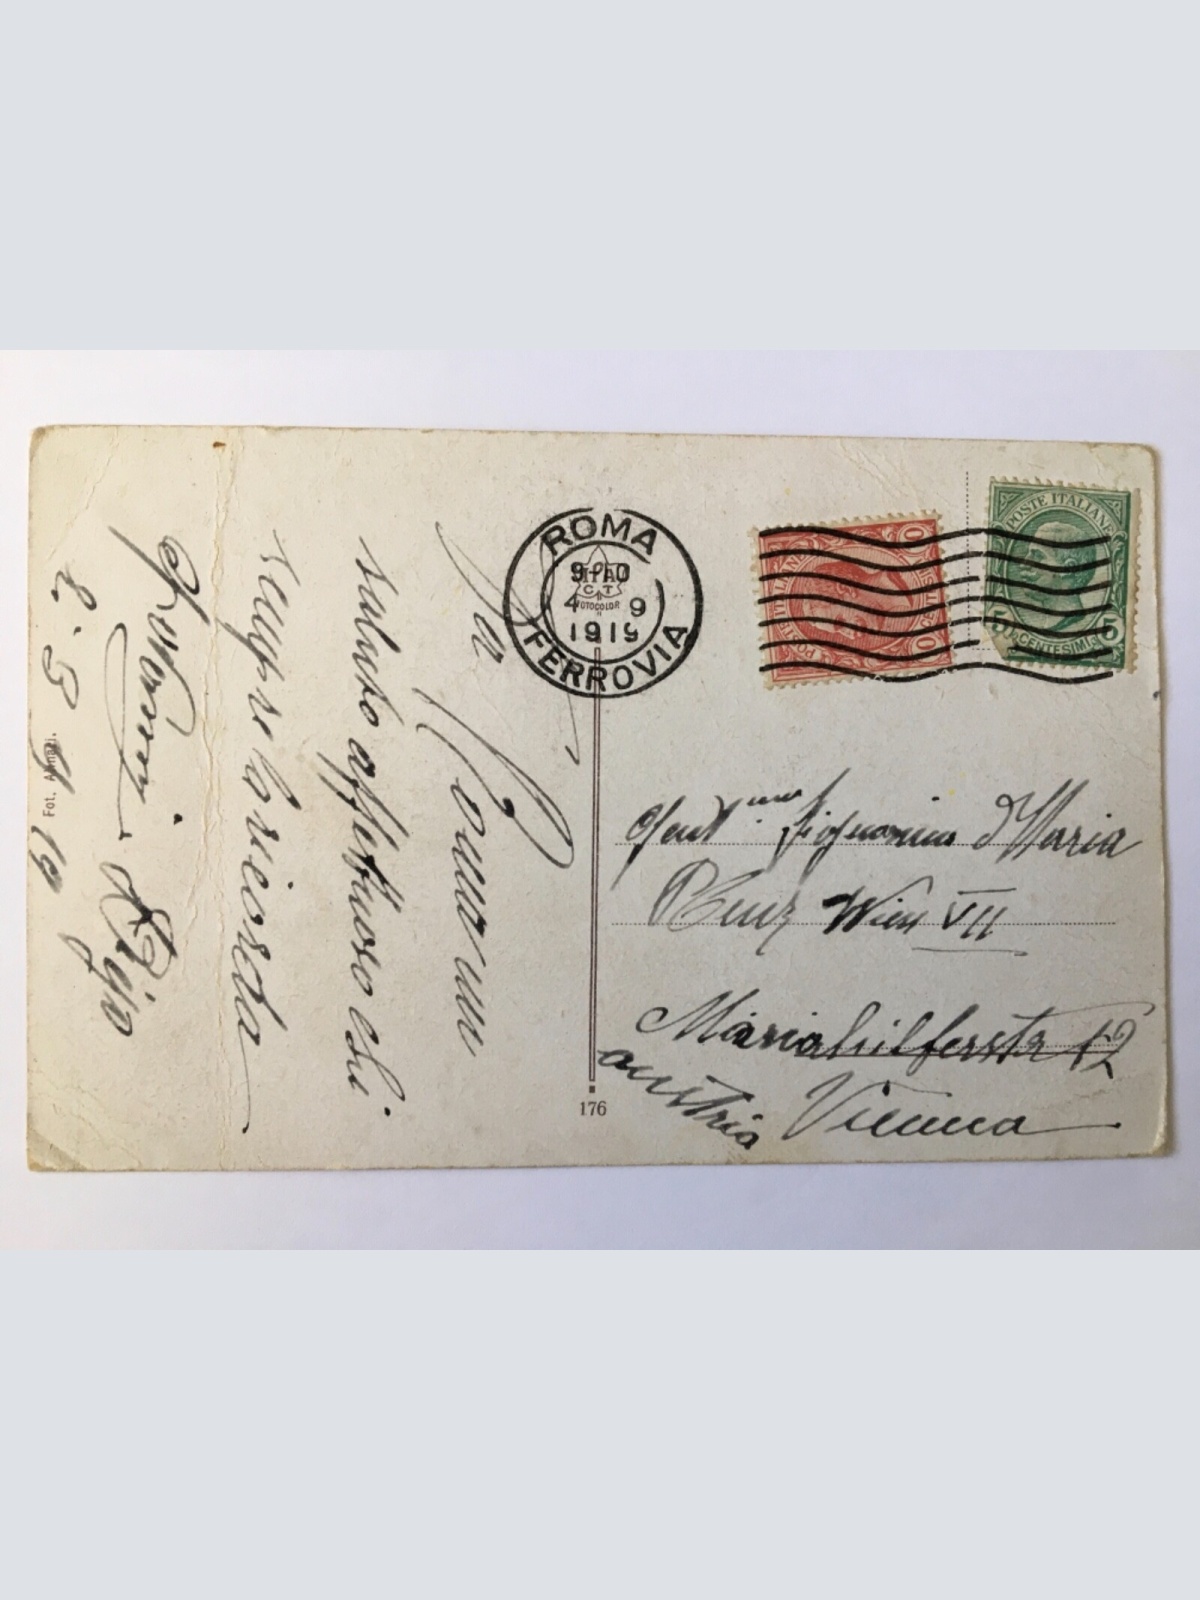 Da Roma un
saluto affettuoso chi
sempre la ricorda
Gigio
2. 9. 19
Fot. Alinari.
ROMA
9-10
4 9
1919
FERROVIA
ITA
C T
FOTOCOLOR
POSTE ITALIANE
10 CENTESIMI 10
POSTE ITALIANE
5 CENTESIMI 5
Gent.ma Signorina Maria
Benz Wien VII
Mariahilferstr 12
Austria Vienna
176